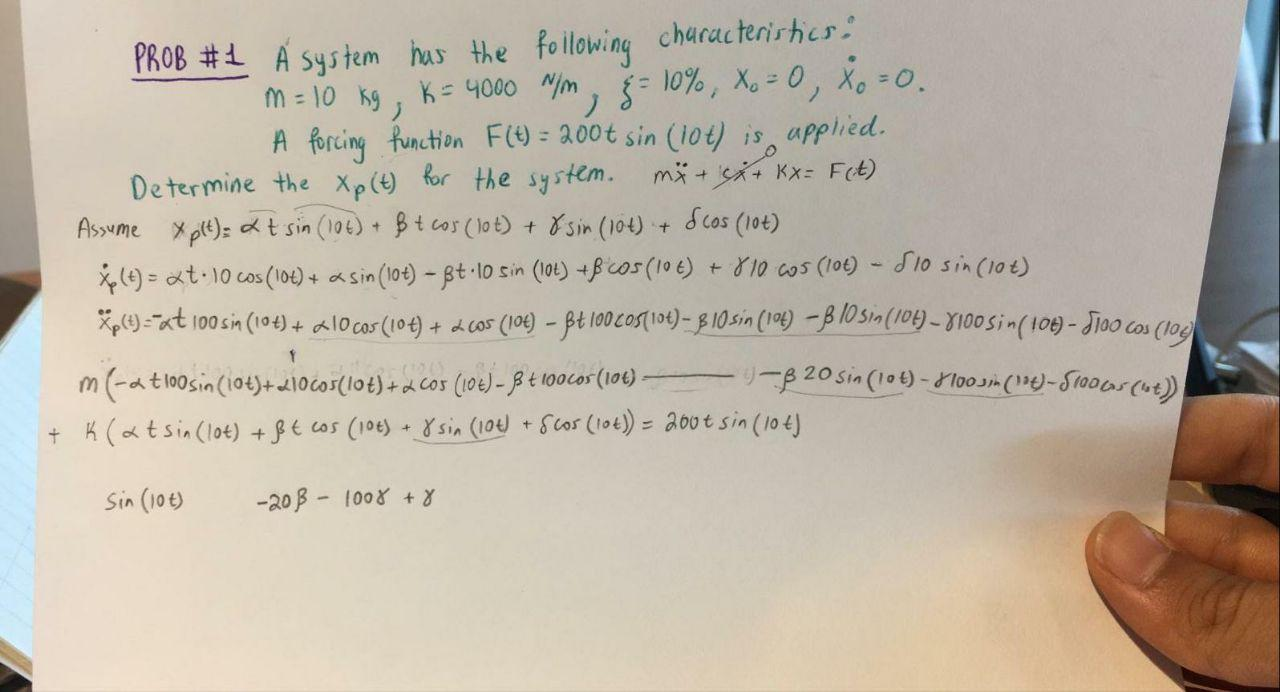 PROB #1 A system has the following characteristics:
m = 10 kg, K = 4000 N/m, ξ = 10%, X₀ = 0, Ẋ₀ = 0.
A forcing function F(t) = 200t sin (10t) is applied.
Determine the Xp(t) for the system. mẍ + cẋ + Kx = F(t)
0
Assume Xp(t) = αt sin(10t) + βt cos(10t) + γ sin(10t) + δ cos(10t)
ẋp(t) = αt·10 cos(10t) + α sin(10t) − βt·10 sin (10t) + β cos(10t) + γ10 cos(10t) − δ10 sin(10t)
ẍp(t) = −αt 100 sin(10t) + α10 cos(10t) + α cos(10t) − βt 100 cos(10t) − β10 sin(10t) − β10 sin(10t) − γ100 sin(10t) − δ100 cos(10t)
m(−αt100 sin(10t) + α10 cos(10t) + α cos (10t) − βt100 cos(10t) — −β 20 sin(10t) − γ100 sin(10t) − δ100 cos(10t))
+ K(αt sin(10t) + βt cos (10t) + γ sin (10t) + δ cos(10t)) = 200t sin(10t)
Sin (10t) −20β − 100γ + γ